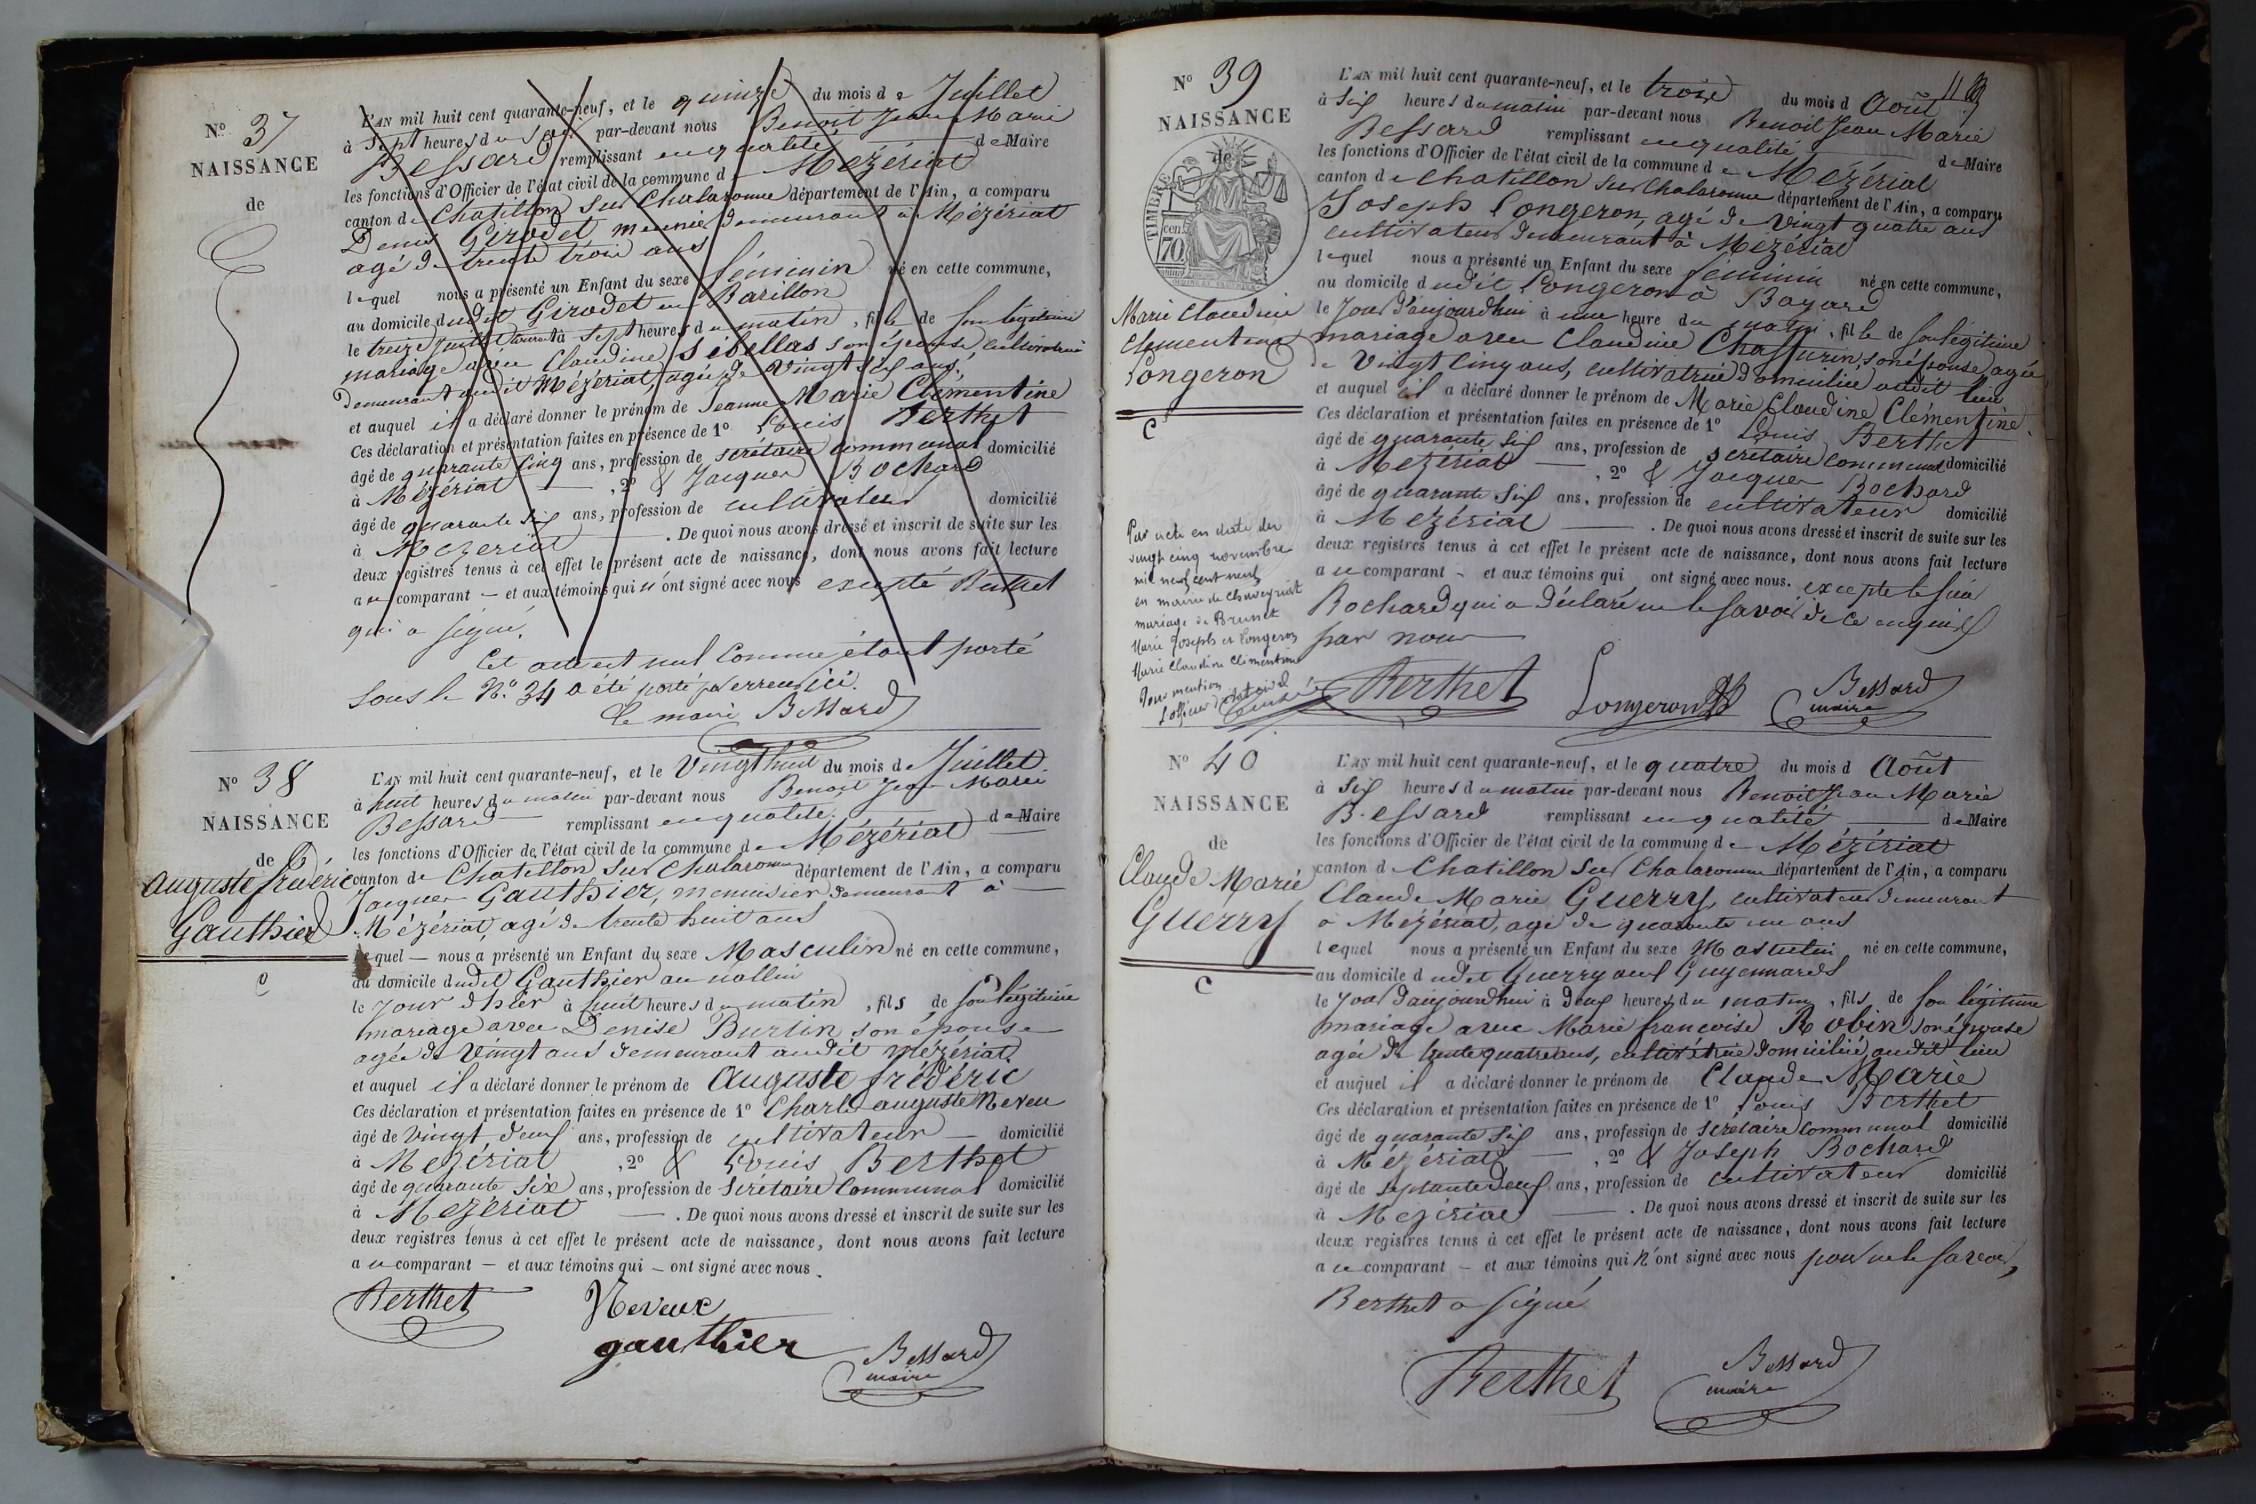 N° 37
NAISSANCE
de
L'AN mil huit cent quarante-neuf, et le quinze du mois de Juillet
à Sept heures du soir par-devant nous Benoit Jean Marie
Bessard remplissant en qualité de Maire
les fonctions d'Officier de l'état civil de la commune de Mézériat
canton de Chatillon sur Chalaronne département de l'Ain, a comparu
Denis Girodet meunier demeurant à Mézériat
agé de trente trois ans
lequel nous a présenté un Enfant du sexe féminin né en cette commune,
au domicile dudit Girodet au Barillon
le treize Juillet courant à Sept heures du matin, fille de son légitime
mariage avec Claudine Sibellas son épouse cultivatrice
demeurant audit Mézériat, agée de vingt six ans,
et auquel il a déclaré donner le prénom de Jeanne Marie Clémentine
Ces déclaration et présentation faites en présence de 1° Louis Berthet
âgé de quarante cinq ans, profession de secrétaire communal domicilié
à Mézériat, 2° & Jacques Bochard
âgé de quarante six ans, profession de cultivateur domicilié
à Mézériat. De quoi nous avons dressé et inscrit de suite sur les
deux registres tenus à cet effet le présent acte de naissance, dont nous avons fait lecture
au comparant — et aux témoins qui n'ont signé avec nous excepté Berthet
qui a signé.
Cet acte est nul comme étant porté
sous le N° 34 a été porté par erreur ici.
le maire Bessard
N° 38
NAISSANCE
de
Auguste frédéric
Gauthier
C
L'AN mil huit cent quarante-neuf, et le Vingt huit du mois de Juillet
à huit heures du matin par-devant nous Benoit Jean Marie
Bessard — remplissant en qualité de Maire
les fonctions d'Officier de l'état civil de la commune de Mézériat
canton de Chatillon sur Chalaronne département de l'Ain, a comparu
Jacques Gauthier, menuisier demeurant à —
Mézériat, agé de trente huit ans
lequel — nous a présenté un Enfant du sexe Masculin né en cette commune,
au domicile dudit Gauthier au
le Jour d'hier à huit heures du matin, fils de son légitime
mariage avec Denise Burtin son épouse
agée de Vingt ans demeurant audit mézériat.
et auquel il a déclaré donner le prénom de Auguste frédéric
Ces déclaration et présentation faites en présence de 1° Charle auguste Neveu
âgé de Vingt deux ans, profession de cultivateur — domicilié
à Mézériat, 2° & Louis Berthet
âgé de quarante six ans, profession de Secrétaire Communal domicilié
à Mézériat — . De quoi nous avons dressé et inscrit de suite sur les
deux registres tenus à cet effet le présent acte de naissance, dont nous avons fait lecture
au comparant — et aux témoins qui — ont signé avec nous.
Berthet Neveux
gauthier
Bessard
maire
113
N° 39
NAISSANCE
de
TIMBRE
70
cen.
Marie Claudine
Clémentine
Longeron
C
L'AN mil huit cent quarante-neuf, et le trois du mois d Août
à Six heures du matin par-devant nous Benoit Jean Marie
Bessard remplissant en qualité de Maire
les fonctions d'Officier de l'état civil de la commune de Mézériat
canton de Chatillon sur Chalaronne département de l'Ain, a comparu
Joseph Longeron, agé de vingt quatre ans
cultivateur demeurant à Mézériat
lequel nous a présenté un Enfant du sexe féminin né en cette commune,
au domicile dudit Longeron à Bayard
le Jour d'aujourdhui à une heure du matin, fille de son légitime
mariage avec Claudine Chaffurin, son épouse, agée
de Vingt Cinq ans, cultivatrice domiciliée audit lieu
et auquel il a déclaré donner le prénom de Marie Claudine Clémentine.
Ces déclaration et présentation faites en présence de 1° Louis Berthet
âgé de quarante six ans, profession de secrétaire communal domicilié
à Mézériat —, 2° & Jacques Bochard
âgé de quarante Six ans, profession de cultivateur domicilié
à Mézériat — . De quoi nous avons dressé et inscrit de suite sur les
deux registres tenus à cet effet le présent acte de naissance, dont nous avons fait lecture
au comparant - et aux témoins qui ont signé avec nous. excepté le sieur
Bochard qui a déclaré ne le savoir de ce enquis
par nous
Berthet Longeron Bessard
maire
Par acte en date du
vingt cinq novembre
mil neuf cent neuf
en mairie de Chaveyriat
mariage de Brunet
Marie Joseph et Longeron
Marie Claudine Clémentine
Pour mention
L'officier d'état civil
N° 40
NAISSANCE
de
Claude Marie
Guerry
C
L'AN mil huit cent quarante-neuf, et le quatre du mois d Août
à Six heures du matin par-devant nous Benoit Jean Marie
Bessard remplissant en qualité — de Maire
les fonctions d'Officier de l'état civil de la commune de Mézériat
canton de Chatillon sur Chalaronne département de l'Ain, a comparu
Claude Marie Guerry, cultivateur demeurant
à Mézériat, agé de quarante un ans
lequel nous a présenté un Enfant du sexe Masculin né en cette commune,
au domicile dudit Guerry aux Guyennards
le Jour d'aujourdhui à deux heures du matin, fils de son légitime
mariage avec Marie françoise Robin son épouse
agée de trente quatre ans, cultivatrice domiciliée audit lieu
et auquel il a déclaré donner le prénom de Claude Marie
Ces déclaration et présentation faites en présence de 1° Louis Berthet
âgé de quarante six ans, profession de secrétaire communal domicilié
à Mézériat —, 2° & Joseph Bochard
âgé de septante deux ans, profession de cultivateur domicilié
à Mézériat — . De quoi nous avons dressé et inscrit de suite sur les
deux registres tenus à cet effet le présent acte de naissance, dont nous avons fait lecture
au comparant — et aux témoins qui n'ont signé avec nous pour ne le savoir,
Berthet a signé
Berthet Bessard
maire